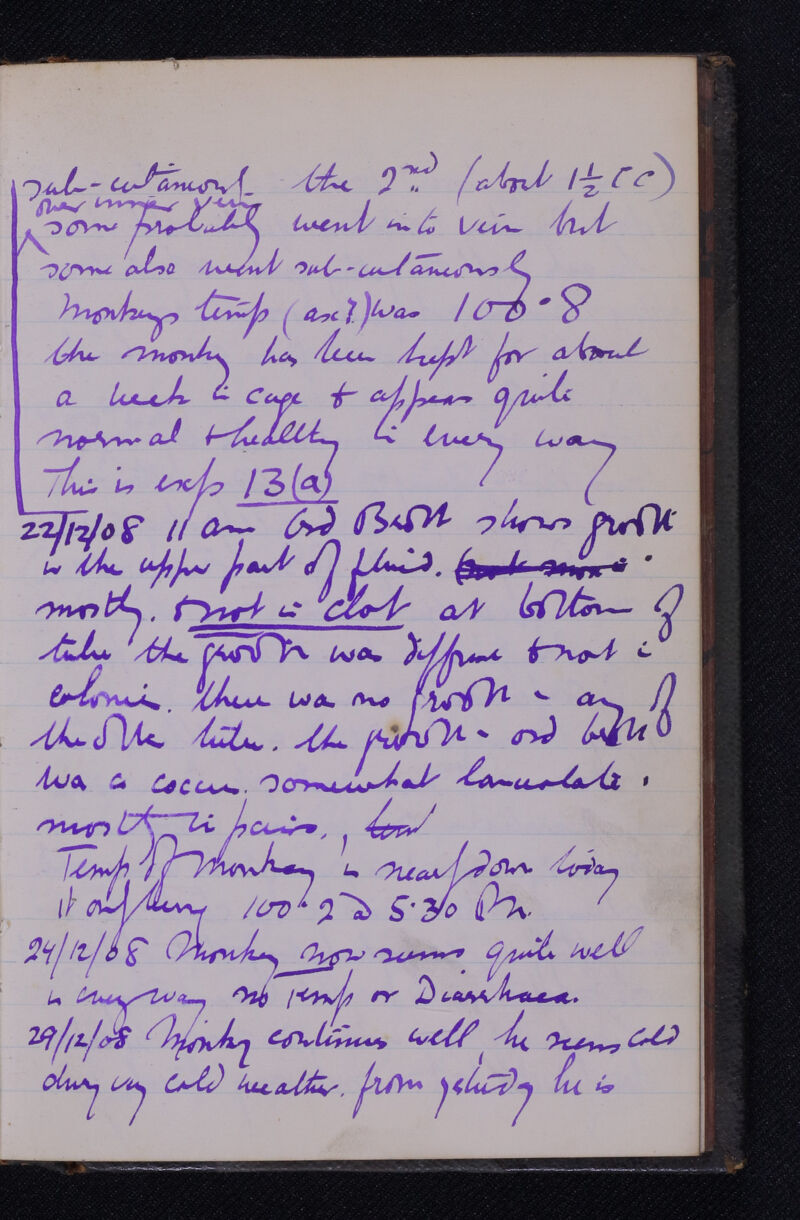 sub-cutaneous. the 2nd (about 1½ CC)
over inner vein
some probably went into vein but
some also went sub-cutaneously
Monkeys temp (ax?) was 100.8
the monkey has been kept for about
a week in cage & appears quite
normal & healthy in every way
This is exp 13(a)
22/12/08 11 am Ord Broth shows growth
in the upper part of fluid.
mostly. & not in clot at bottom of
tube the growth was diffuse & not in
colonies. there was no growth in any of
the other tubes. the growth in ord broth
was a coccus. somewhat lanceolate.
mostly in pairs.
Temp of Monkey is nearly down today
it only being 100.2 @ 5.30 PM.
24/12/08 Monkey now seems quite well
in every way no Temp or Diarrhaea.
29/12/08 Monkey continues well, he seems cold
during very cold weather. from yesterday he is